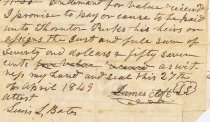 Demand for value received
I promise to pay or cause to be paid
unto Thornton Parks his heirs or
assigns the Just and full sum of
Seventy one dollars & fifty seven
cents for value received as wit
ness my hand and seal this 27th
of April 1849
attest James
Lewis L. Bates